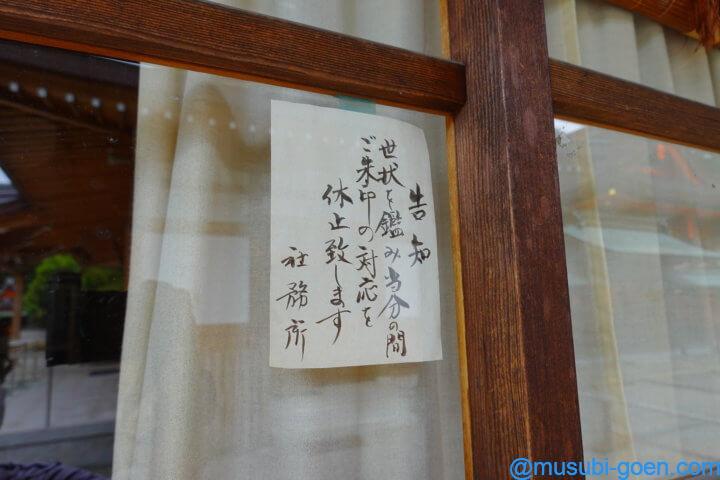 告知
世状を鑑み当分の間
ご朱印の対応を
休止致します
社務所
@musubi-goen.com